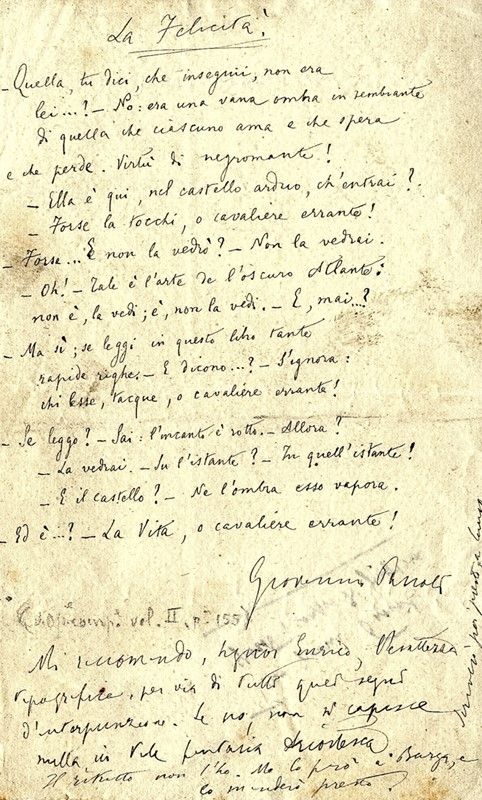 La Felicità.
– Quella, tu dici, che inseguii, non era
lei...? – No: era una vana ombra in sembiante
di quella che ciascuno ama e che spera
e che perde. Virtù di negromante!
– Ella è qui, nel castello arduo, ch'entrai?
– Forse la tocchi, o cavaliere errante!
– Forse... E non la vedrò? – Non la vedrai.
– Oh! – Tale è l'arte de l'oscuro Atlante:
non è, la vedi; è, non la vedi. – E, mai...?
– Ma sì; se leggi in questo libro tante
rapide righe. – E dicono...? – S'ignora:
chi lesse, tacque, o cavaliere errante!
– Se leggo? – Sai: l'incanto è rotto. – Allora?
– La vedrai. – Su l'istante? – In quell'istante!
– E il castello? – Ne l'ombra esso vapora.
– Ed è...? – La Vita, o cavaliere errante!
Giovanni Pascoli
vol. II, p. 155
Mi raccomando, signor Enrico,
tipografica, per via di tutti quei segni
d'interpunzione. Se no, non si capisce
nulla in tale fantasia
Il ritratto non l'ho. Ma lo farò a Barga, e
lo manderò presto.